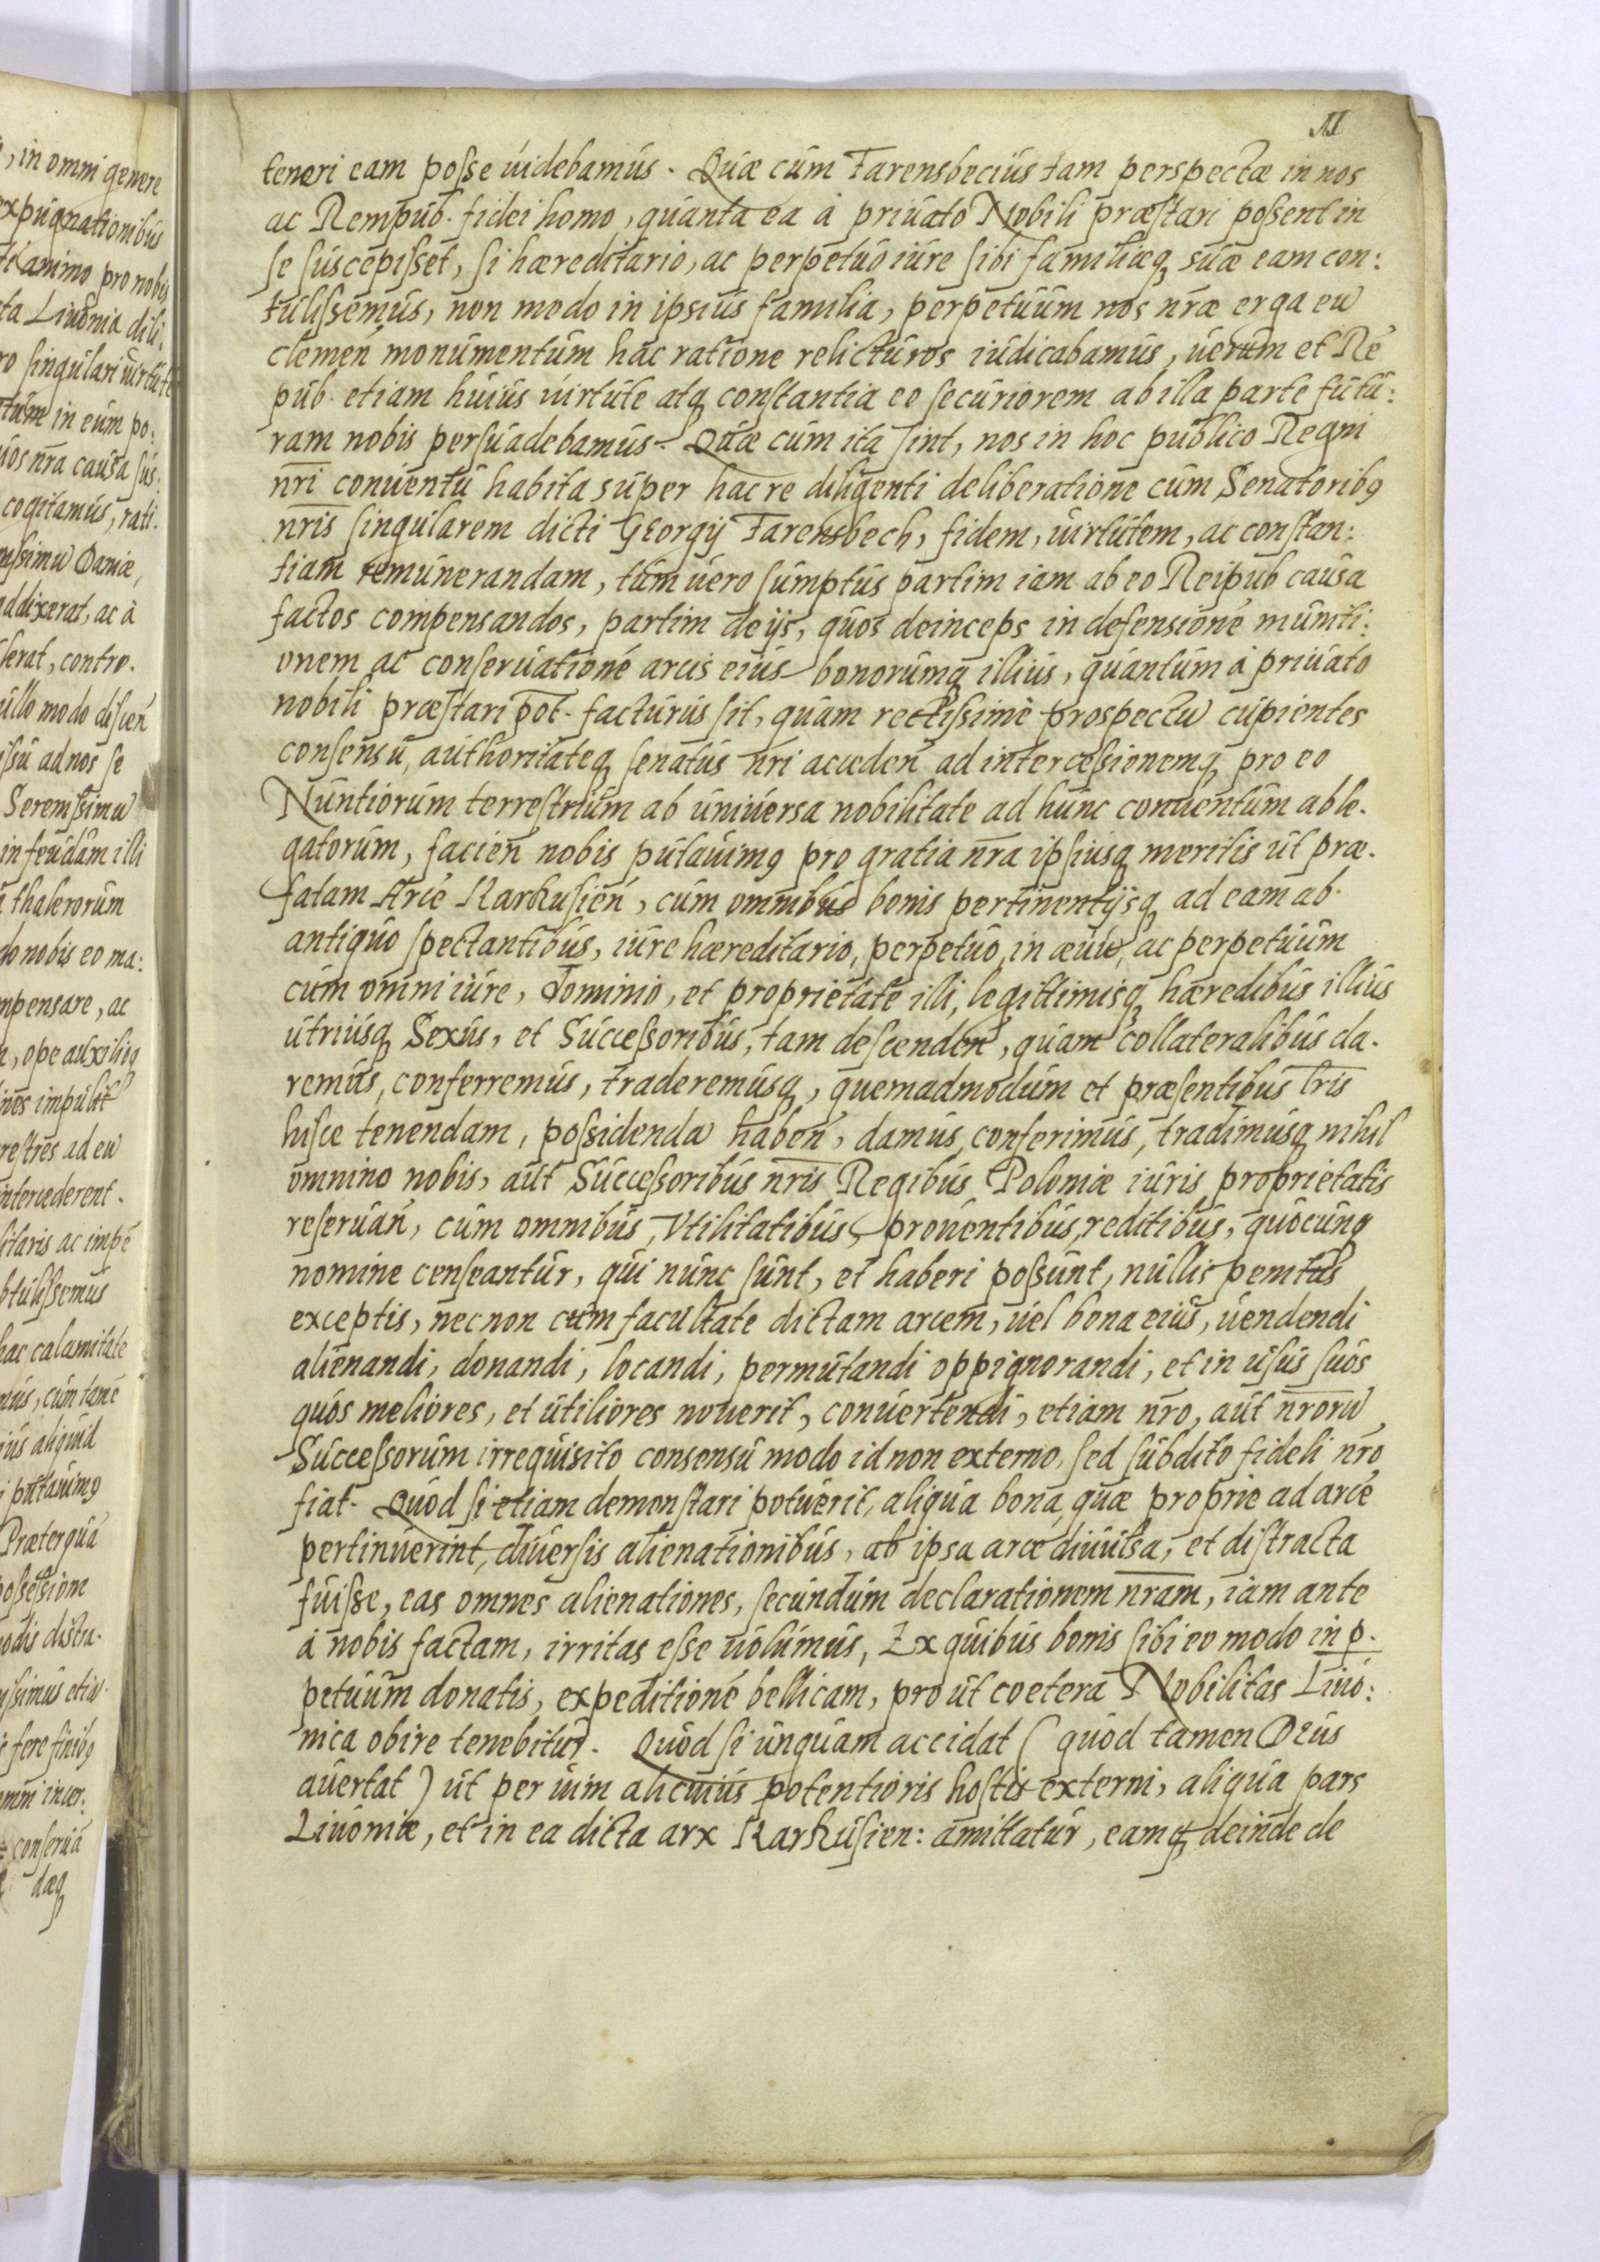 11
teneri eam posse uidebamus. Quæ cum Farensbecius tam perspectæ in nos
ac Rempub. fidei homo, quanta ea à priuato Nobili præstari possent in
se suscepisset, si hæreditario, ac perpetuo iure sibi familiæq suæ eam con:
tulissemus, non modo in ipsius familia, perpetuum nos nræ erga eu
clemen monumentum hac ratione relicturos iudicabamus, uerum et Re
pub. etiam huius uirtute atq constantia eo securiorem ab illa parte futu:
ram nobis persuadebamus. Quæ cum ita sint, nos in hoc publico Regni
nri conuentu habita super hac re diligenti deliberatione cum Senatoribq
nris singularem dicti Georgij Farensbech, fidem, uirtutem, ac constan:
tiam remunerandam, tum uero sumptus partim iam ab eo Reipub causa
factos compensandos, partim de ijs, quos deinceps in defensioné muniti:
onem ac conseruationé arcis eius bonorumq illius, quantum à priuato
nobili præstari pot. facturus sit, quam rectissimè prospectu cupientes
consensu, authoritateq senatus nri acceden ad intercessionemq pro eo
Nuntiorum terrestrium ab uniuersa nobilitate ad hunc conuentum able.
gatorum, facien nobis putauimq pro gratia nra ipsiusq meritis ut præ.
fatam Arcé Karkusien, cum omnibus bonis pertinentijsq ad eam ab
antiquo spectantibus, iure hæreditario, perpetuo, in æuu, ac perpetuum
cum omni iure, Dominio, et proprietate illi, legittimisq hæredibus illius
utriusq Sexus, et Successoribus, tam descenden, quam collateralibus da.
remus, conferremus, traderemusq, quemadmodum et præsentibus lris
hisce tenendam, possidenda haben, damus, conferimus, tradimusq nihil
omnino nobis, aut Successoribus nris Regibus Poloniæ iuris proprietatis
reseruan, cum omnibus, Vtilitatibus, prouentibus, reditibus, quocunq
nomine censeantur, qui nunc sunt, et haberi possunt, nullis penitus
exceptis, nec non cum facultate dictam arcem, uel bona eius, uendendi
alienandi, donandi, locandi, permutandi oppignorandi, et in usus suos
quos meliores, et utiliores nouerit, conuertendi, etiam nro, aut nroru
Successorum irrequisito consensu modo id non externo, sed subdito fideli nro
fiat. Quod si etiam demonstari potuerit, aliqua bona, quæ proprie ad arcé
pertinuerint, diuersis alienationibus, ab ipsa arce diuulsa, et distracta
fuisse, eas omnes alienationes, secundum declarationem nram, iam ante
à nobis factam, irritas esse uolumus, Ex quibus bonis sibi eo modo in p.
petuum donatis, expeditioné bellicam, pro ut coetera Nobilitas Liuo:
nica obire tenebitur. Quod si unquam accidat ( quod tamen Deus
auertat ) ut per uim alicuius potentioris hostis externi, aliqua pars
Liuoniæ, et in ea dicta arx Karkusien: amittatur, eamq deinde de